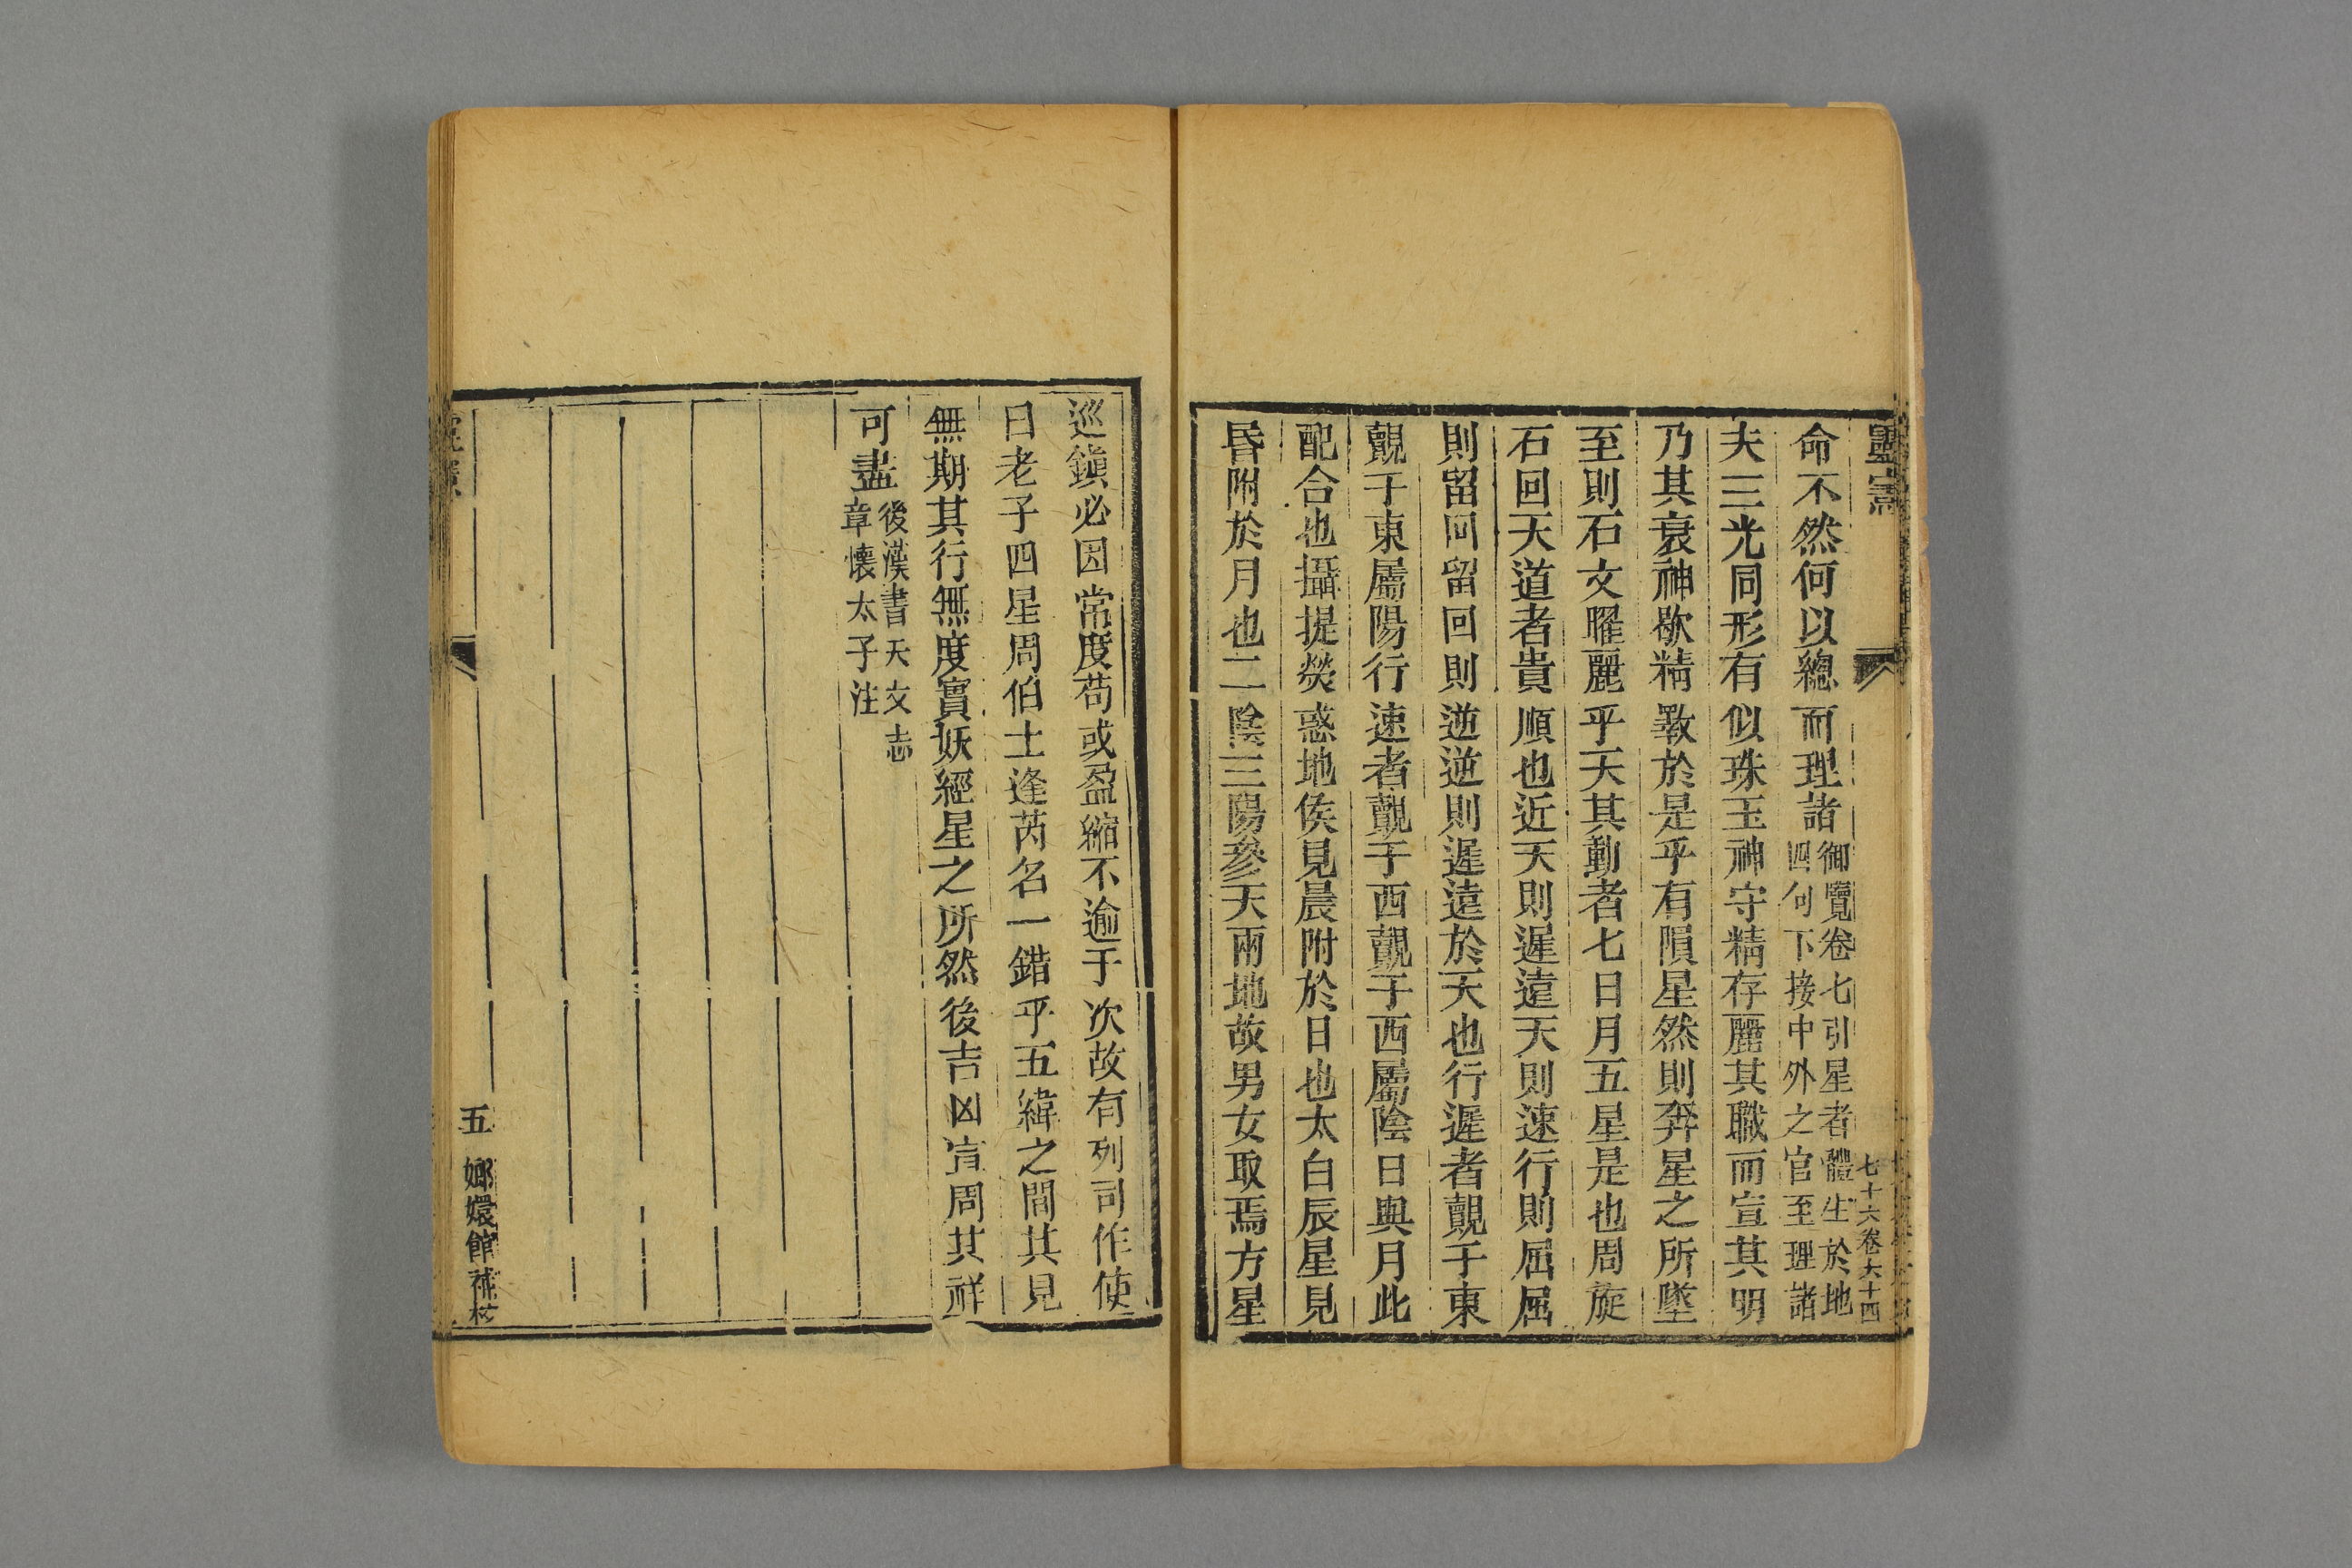 靈憲
七十六卷六十四
命不然何以總而理諸御覽卷七引星者體生於地四句下接中外之官至理諸
夫三光同形有似珠玉神守精存麗其職而宣其明
乃其衰神歇精斁於是乎有隕星然則奔星之所墜
至則石文曜麗乎天其動者七日月五星是也周旋
石回天道者貴順也近天則遲遠天則速行則屈屈
則留回留回則逆逆則遲遠於天也行遲者覿于東
覿于東屬陽行速者覿于西覿于西屬陰日與月此
配合也攝提熒惑地侯見晨附於日也太白辰星見
昏附於月也二陰三陽參天兩地故男女取焉方星
巡鎭必因常度苟或盈縮不逾于次故有列司作使
曰老子四星周伯王逢芮各一錯乎五緯之間其見
無期其行無度實妖經星之所然後吉凶宣周其祥
可盡後漢書天文志章懷太子注
五
嫏嬛館補校